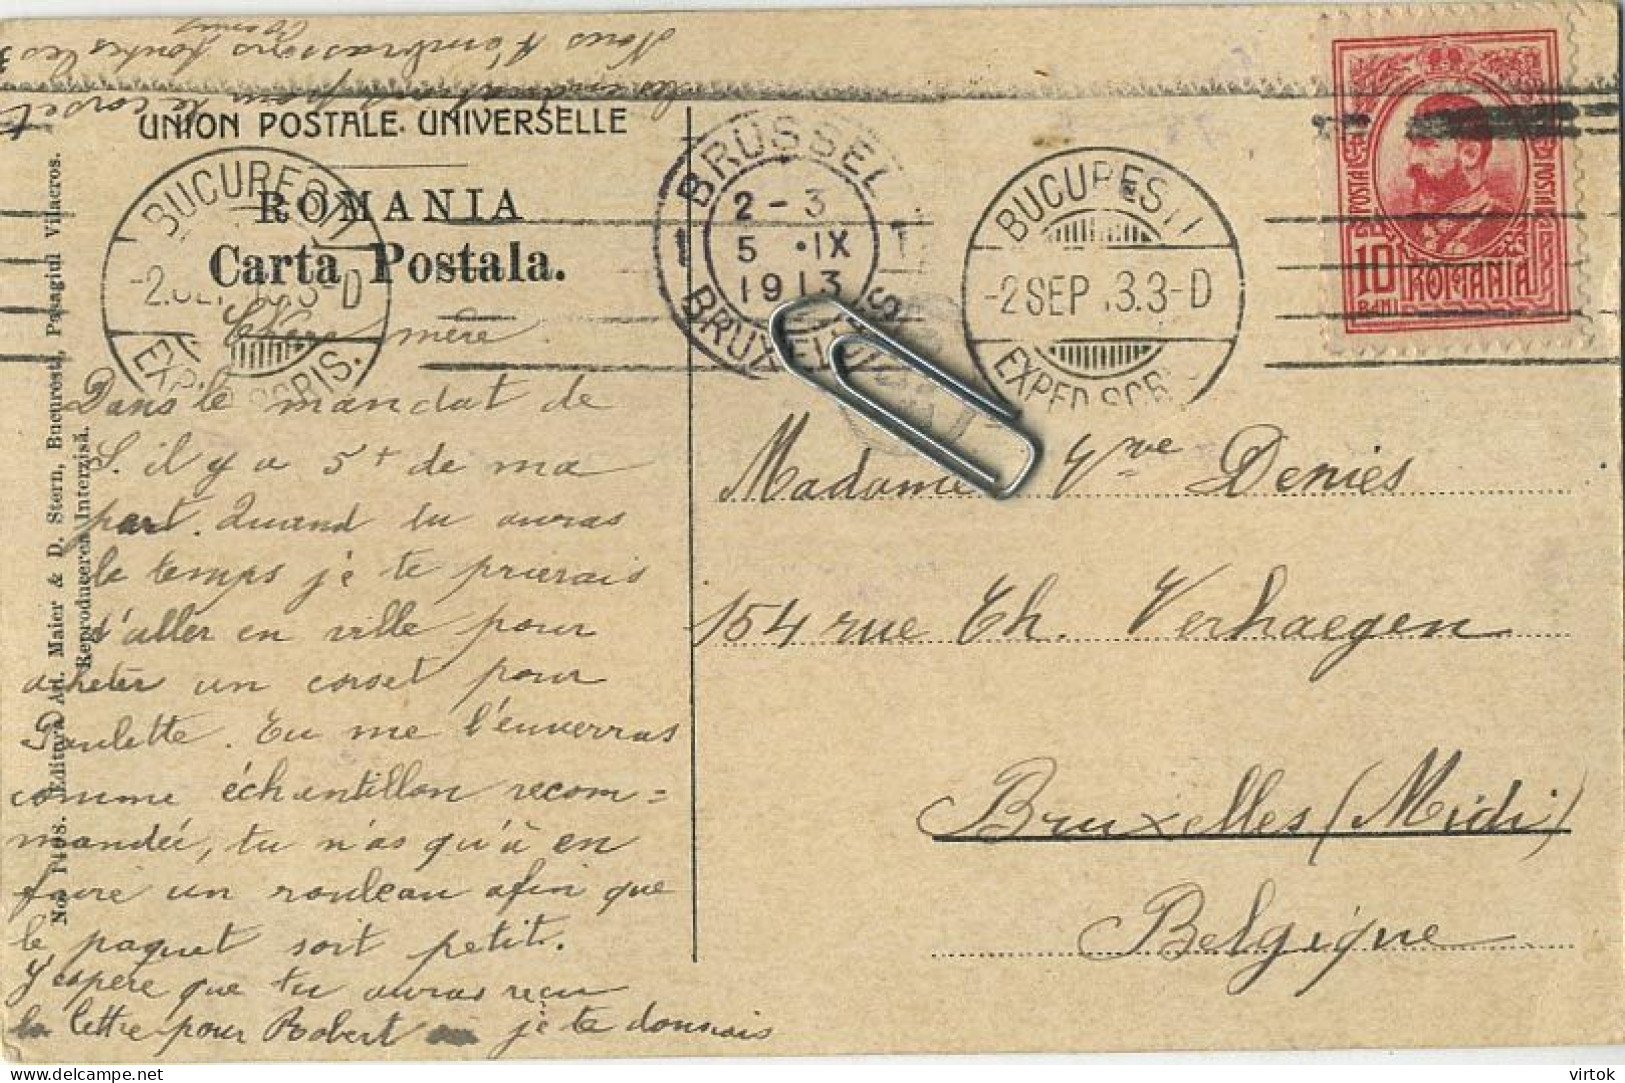 Nous t'embrassons toutes les 3
les indications pour le corset
UNION POSTALE UNIVERSELLE
ROMANIA
Carta Postala.
BUCURESTI
EXPED. SCRIS.
BRUSSEL
1 1
2 - 3
5 · IX
1913
BRUXELLES
BUCURESTI
-2 SEP 13.3-D
EXPED. SCRIS
POSTA
POSTA
10
BANI
ROMANIA
Chère mère
Dans le mandat de
S. il y a 5 + de ma
part. Quand tu auras
le temps je te prierais
d'aller en ville pour
acheter un corset pour
Paulette. Tu me l'enverras
comme échantillon recom=
mandée, tu n'as qu'à en
faire un rouleau afin que
le paquet soit petit.
J'espère que tu auras reçu
la lettre pour Robert je te donnais
Madame Vve Denies
154 rue Th. Verhaegen
Bruxelles (Midi)
Belgique
No. 1408. Editura Ad. Maier & D. Stern, Bucuresti, Pasagiul Vilacros.
Reproducerea Interzisă.
virtok